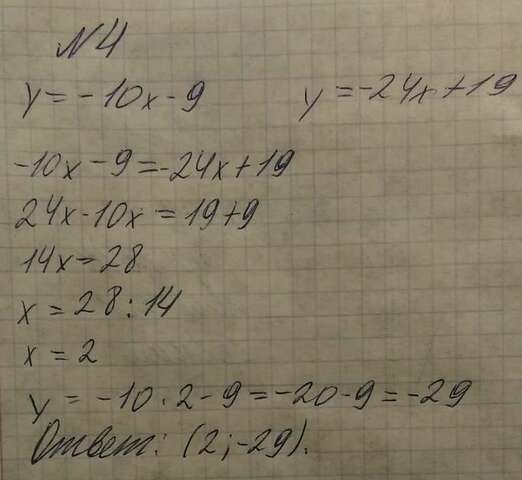 №4
y = -10x - 9 y = -24x + 19
-10x - 9 = -24x + 19
24x - 10x = 19 + 9
14x = 28
x = 28 : 14
x = 2
y = -10 · 2 - 9 = -20 - 9 = -29
Ответ: (2; -29).